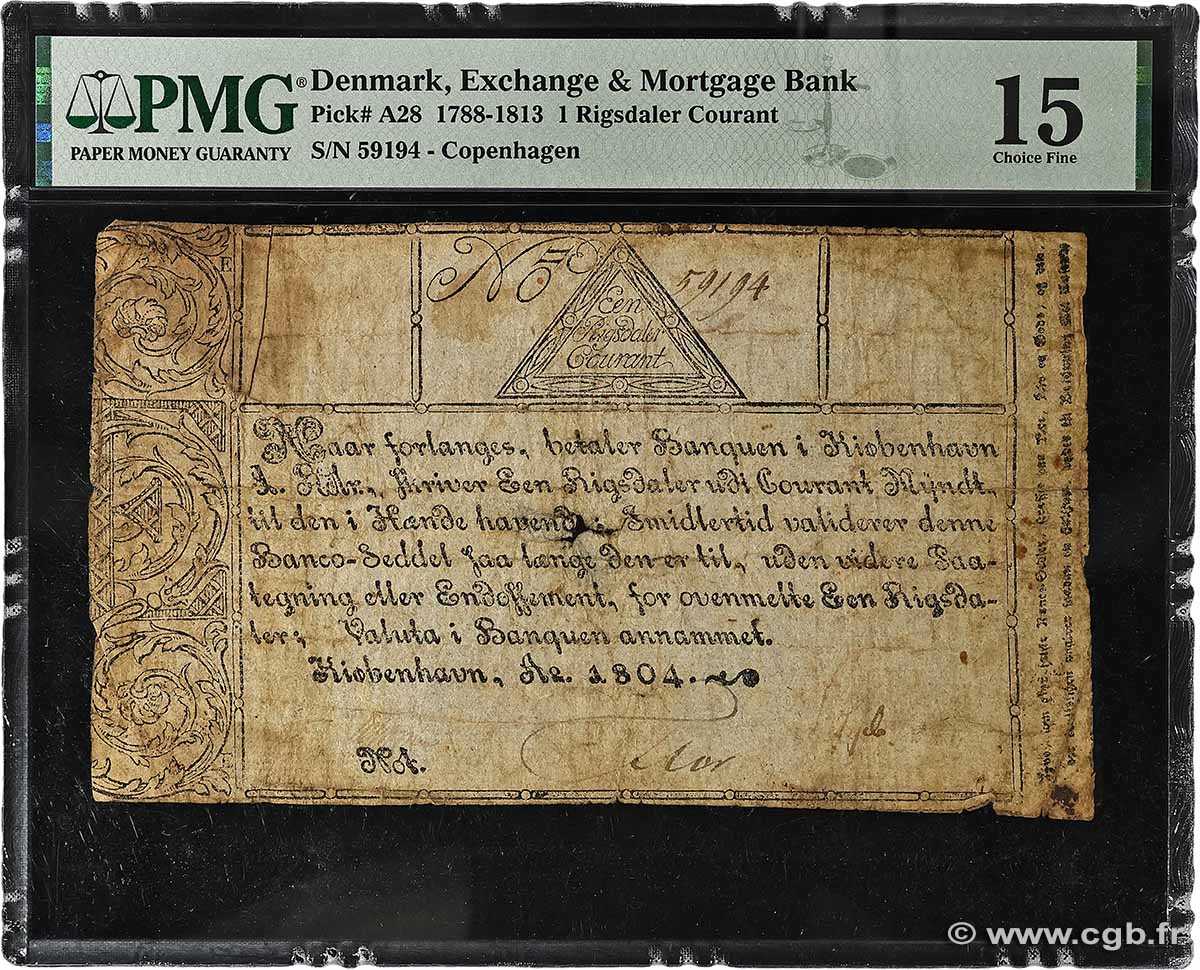 PMG®
PAPER MONEY GUARANTY
Denmark, Exchange & Mortgage Bank
Pick# A28 1788-1813 1 Rigsdaler Courant
S/N 59194 - Copenhagen
15
Choice Fine
E
No 59194
Een
Rigsdaler
Courant
Naar forlanges, betaler Banquen i Kiøbenhavn
skriver Een Rigsdaler udi Courant Myndt,
til den i Hænde havende. Imidlertid validerer denne
Banco-Seddel saa længe den er til, uden videre Paa-
tegning eller Endossement, for ovenmelte Een Rigsda-
ler; Valuta i Banquen annammet.
Kiøbenhavn, Ao. 1804.
Not.
E
© www.cgb.fr